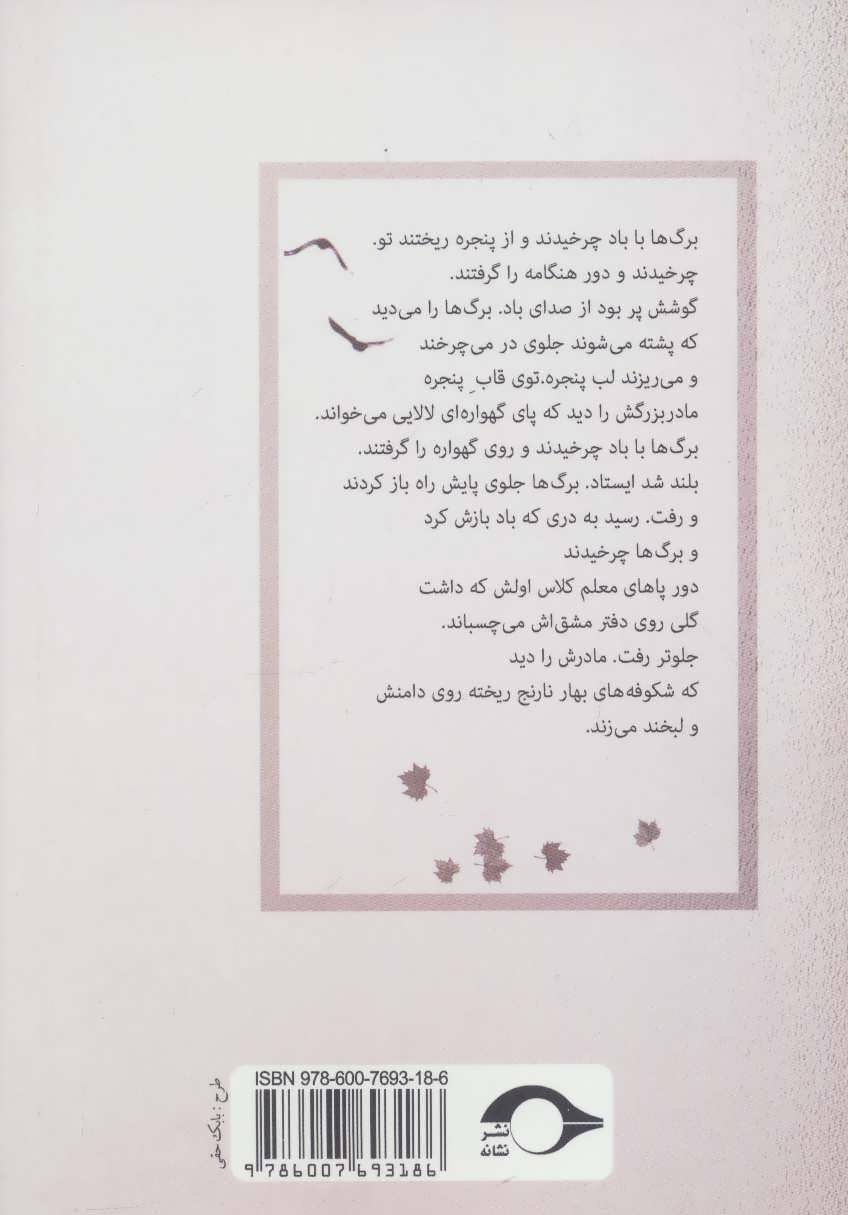 برگ‌ها با باد چرخیدند و از پنجره ریختند تو.
چرخیدند و دور هنگامه را گرفتند.
گوشش پر بود از صدای باد. برگ‌ها را می‌دید
که پشته می‌شوند جلوی در می‌چرخند
و می‌ریزند لب پنجره.توی قابِ پنجره
مادربزرگش را دید که پای گهواره‌ای لالایی می‌خواند.
برگ‌ها با باد چرخیدند و روی گهواره را گرفتند.
بلند شد ایستاد. برگ‌ها جلوی پایش راه باز کردند
و رفت. رسید به دری که باد بازش کرد
و برگ‌ها چرخیدند
دور پاهای معلم کلاس اولش که داشت
گلی روی دفتر مشق‌اش می‌چسباند.
جلوتر رفت. مادرش را دید
که شکوفه‌های بهار نارنج ریخته روی دامنش
و لبخند می‌زند.
ISBN 978-600-7693-18-6
9 786007 693186
نشر
نشانه
طرح : بابک حقی